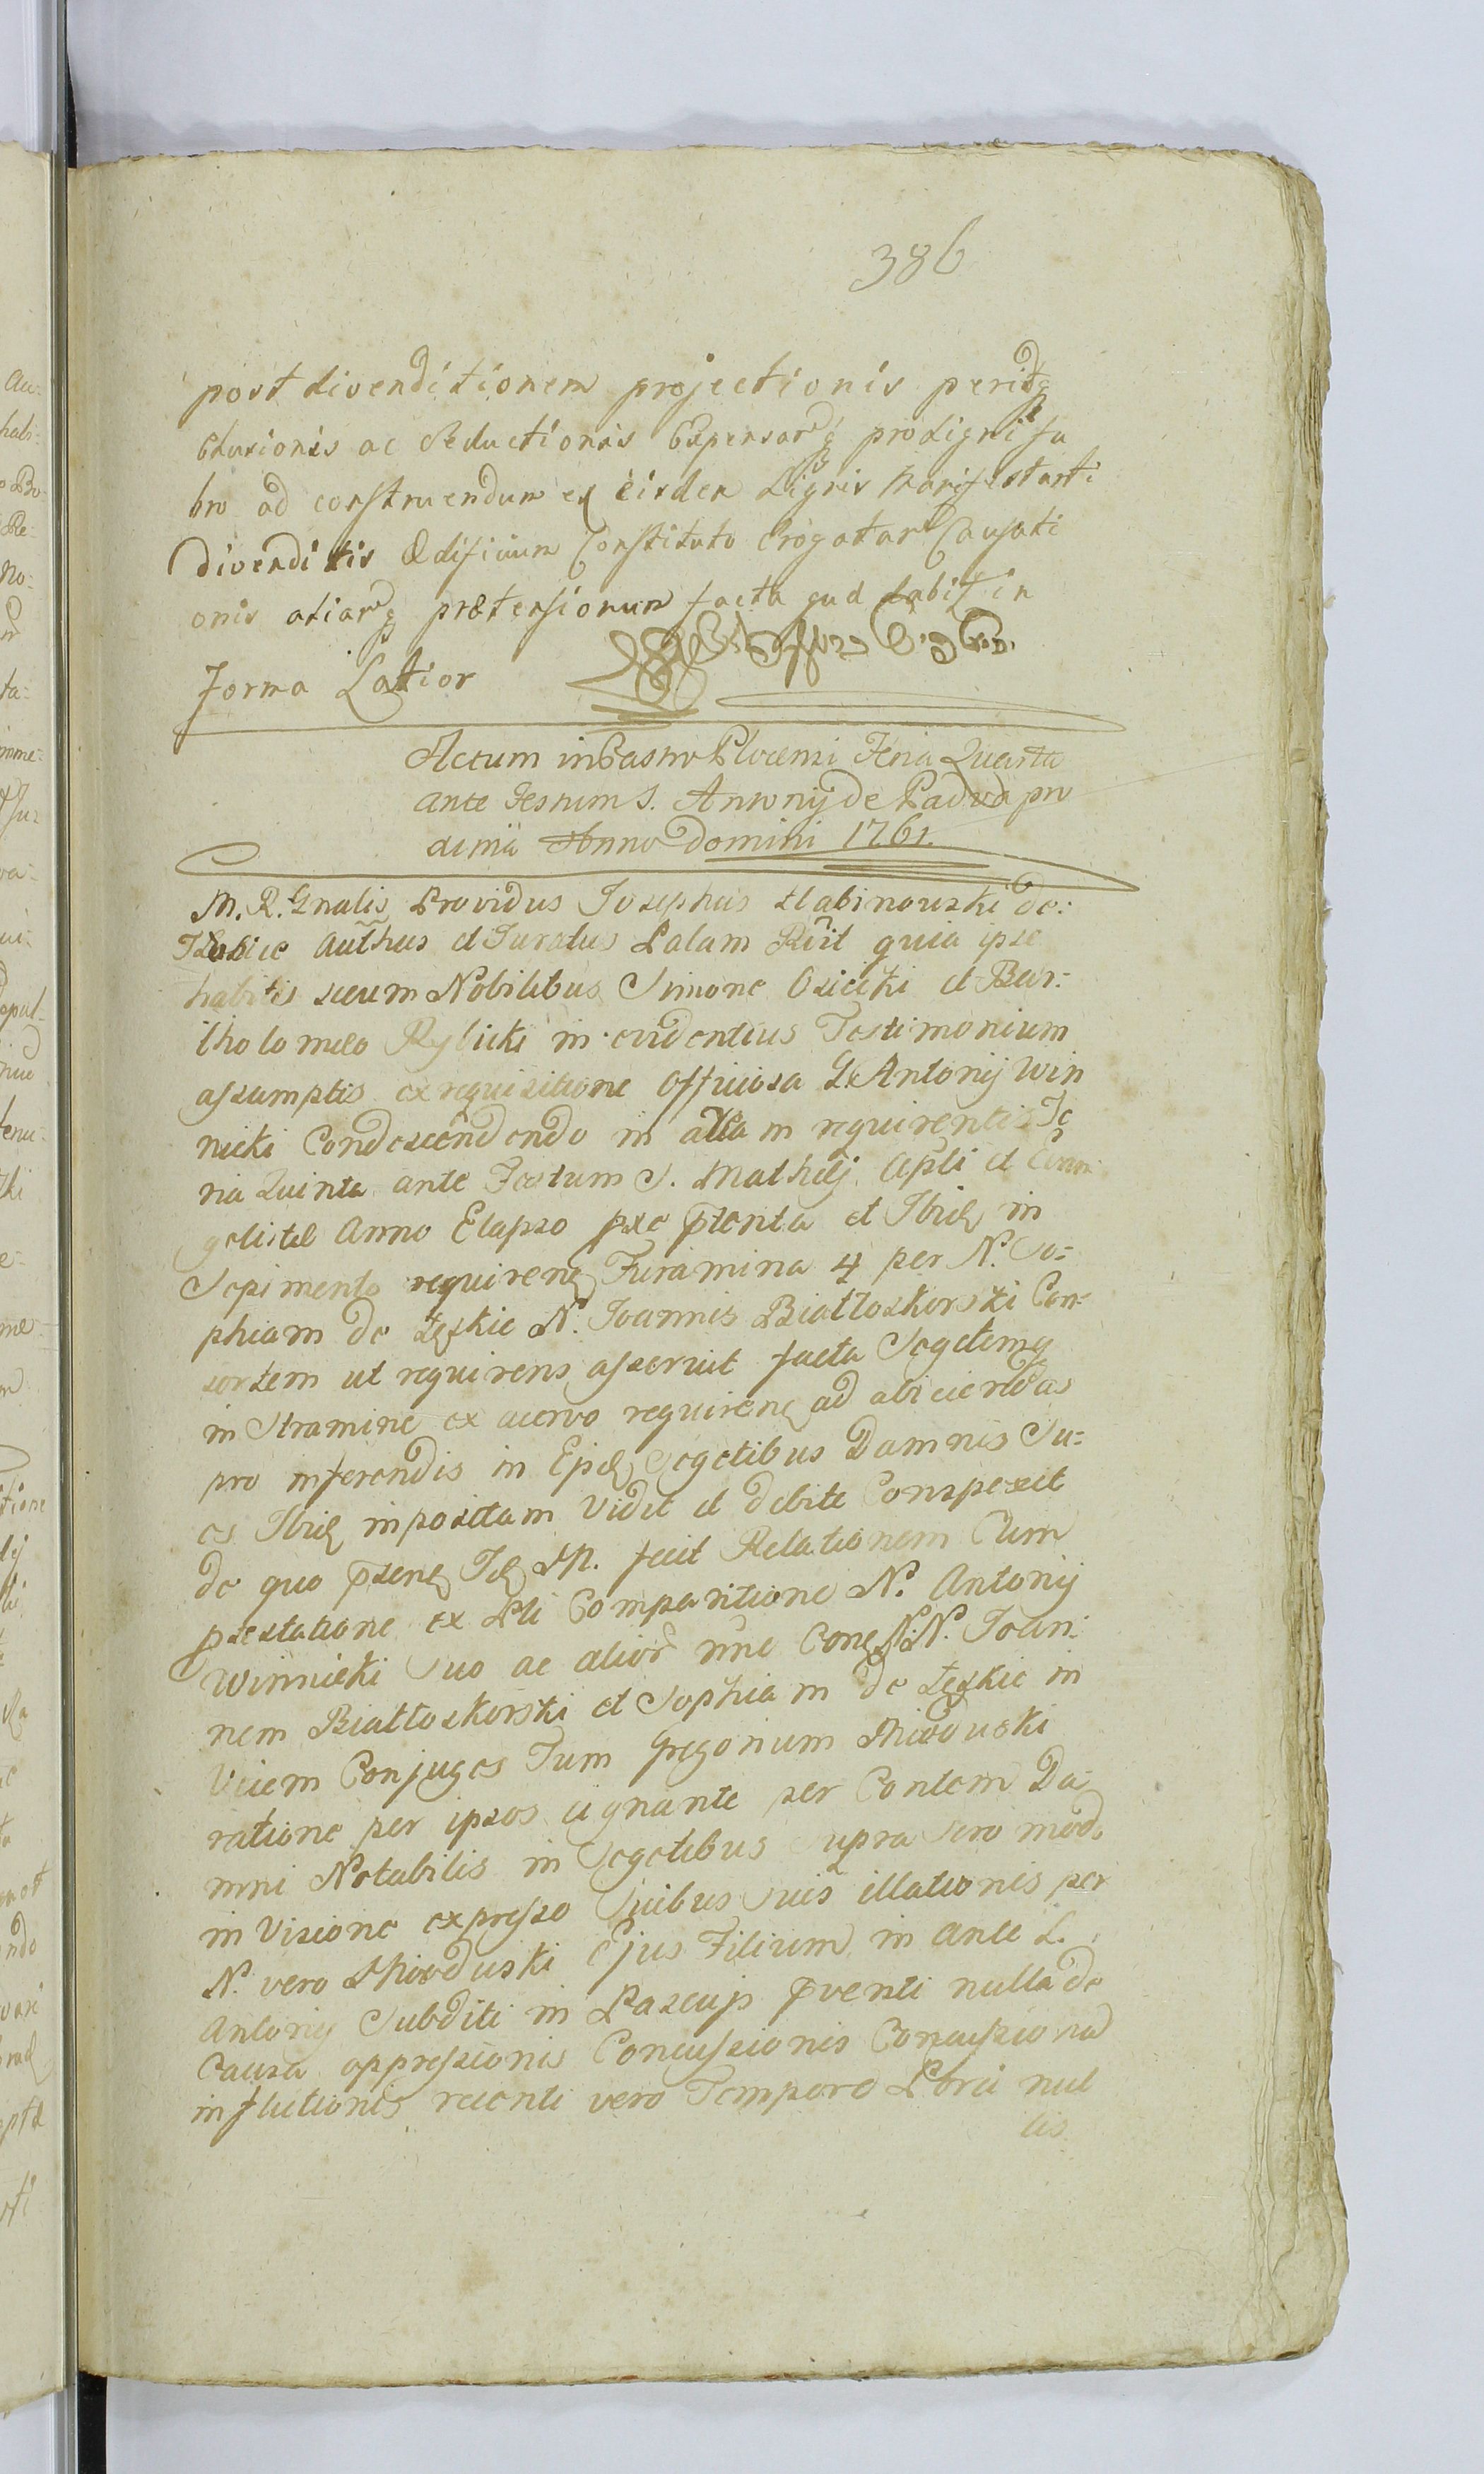 386
post divenditionem projectionis peridq
clusionis ac Seductionis Expensarq pro digni fa
bro ad construendum ex eisdem Lignis Manifestanti
divenditis Ædificium Constituto Erogatar Causati
onis aliarq prætensionum facta qud labit in
Forma Latior
Actum in Castro Plocensi Feria Quarta
ante Festum S. Antonij de Padva pro
xima Anno Domini 1761.
M. R. Gnalis Providus Josephus Słabinowski de
authus et Juratus Palam Rcit quia ipse
habitis secum Nobilibus Simone Osiecki et Bar:
tholomeo Rybicki in evidentius Testimonium
assumptis ex requisitione Officiosa G. Antonij Win
nicki Condescendendo in Villam requirentis Fe
ria Quinta ante Festum S. Mathæj Apli et Evan
gelistæ Anno Elapso ptenta et Ibid in
Sepimento requirens Furamina 4 per N. So=
phiam de Łęskie N. Joannis Białłoskorski Con=
sortem ut requirens asseruit facta Segetemq
in Stramine ex acervo requirens ad alliciendas
pro inferendis in Ejusd Segetibus Damnis Su=
es Ibid impositam Vidit et debite Conspexit
de quo psens Id M. fecit Relationem Cum
ptestatione ex Pti Comparitione N. Antonij
Winnicki Suo ac alior nne Cone NN. Joan:
nem Białłoskorski et Sophiam de Łęskie in
Vicem Conjuges Tum Gregorium
ratione per ipsos signante per Contem Da
mni Notabilis in Segetibus Supra Suo modo
in Visione expresso Suibus Suis illationis per
N. vero Ejus Filium in ante L.
Antonij Subditi in Pascuis pventi nulla de
Causa oppressionis Concussionis
inflictionis recenti vero Tempore nul
lis